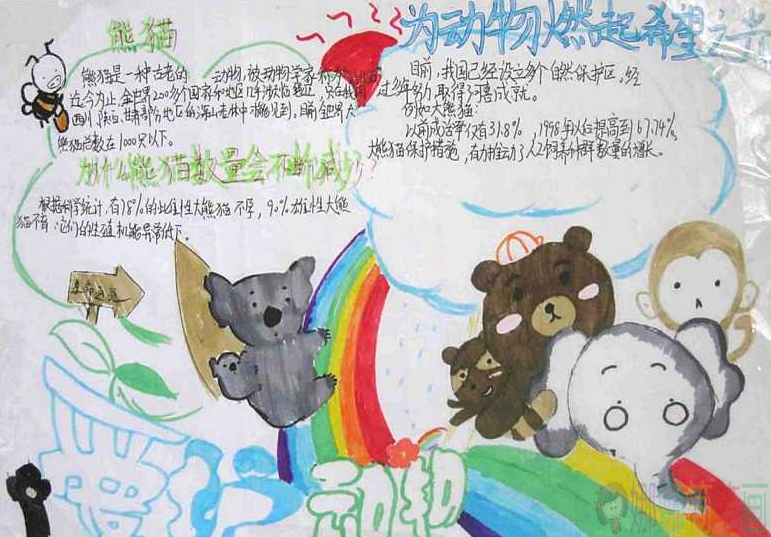 熊猫
熊猫是一种古老的 动物,被动物学家称为
迄今为止,全世界200多个国家和地区几乎濒临绝迹,只在我国
四川、陕西、甘肃部分地区的深山老林中才能见到,目前全世界大
熊猫总数在1000只以下。
为什么熊猫数量会不断减少?
根据科学统计,有78%的雌性大熊猫不孕,90%雄性大熊
猫不育,它们的生殖机能异常低下。
为动物燃起希望之光
目前,我国已经设立多个自然保护区,经
过多年努力,取得了可喜成就。
例如大熊猫:
以前成活率仅有31.8%,1998年以白提高到67.74%,
大熊猫保护措施,有力推动了人工饲养种群数量的增长。
爱护
动物